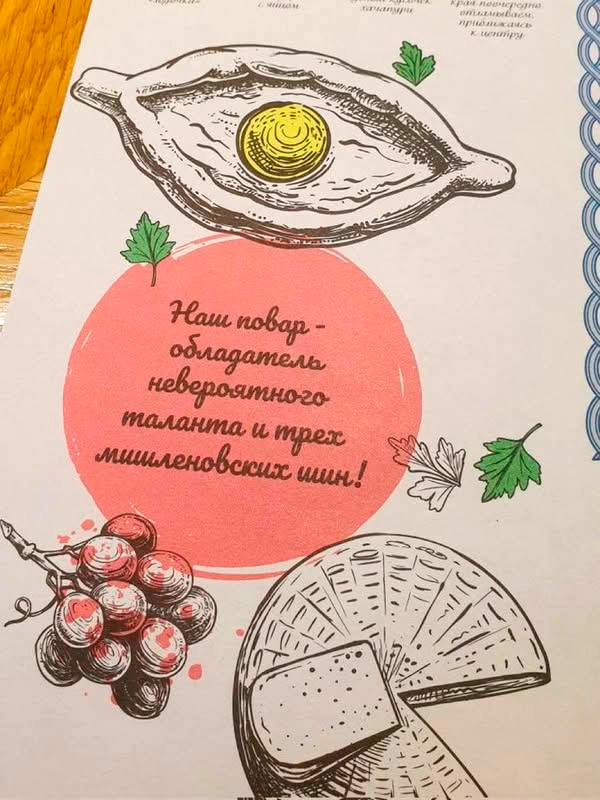 с яйцом
хачапури
края поочередно
отламываем,
приближаясь
к центру
Наш повар -
обладатель
невероятного
таланта и трех
мишленовских шин!